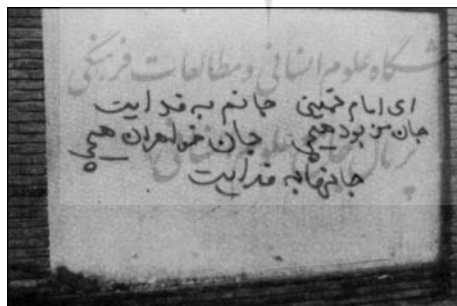 شگاه علوم انسانی و مطالعات فرهنگی
ای امام خمینی جانم به فدایت
جان من بود هیچی جان خواهران هیچی
جانها به فدایت
پرتال جامع علوم انسانی